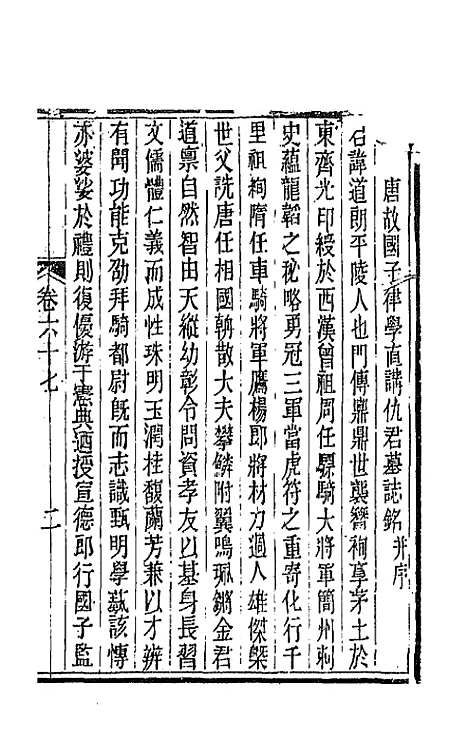 唐故國子律學直講仇君墓誌銘并序
君諱道朗平陵人也門傳鼎鼎世襲簪裾享茅土於
東齊光印綬於西漢曾祖周任驃騎大將軍簡州刺
史蘊龍韜之秘略勇冠三軍當虎符之重寄化行千
里祖徇隋任車騎將軍鷹楊郎將材力過人雄傑槩
世父詵唐任相國朝散大夫攀鱗附翼鳴珮鏘金君
道禀自然智由天縱幼彰令問資孝友以基身長習
文儒體仁義而成性珠明玉潤桂馥蘭芳兼以才辨
有聞功能克劭拜騎都尉旣而志識甄明學蓺該博
亦婆娑於禮則復優游于憲典迺授宣德郎行國子監
卷六十七
二